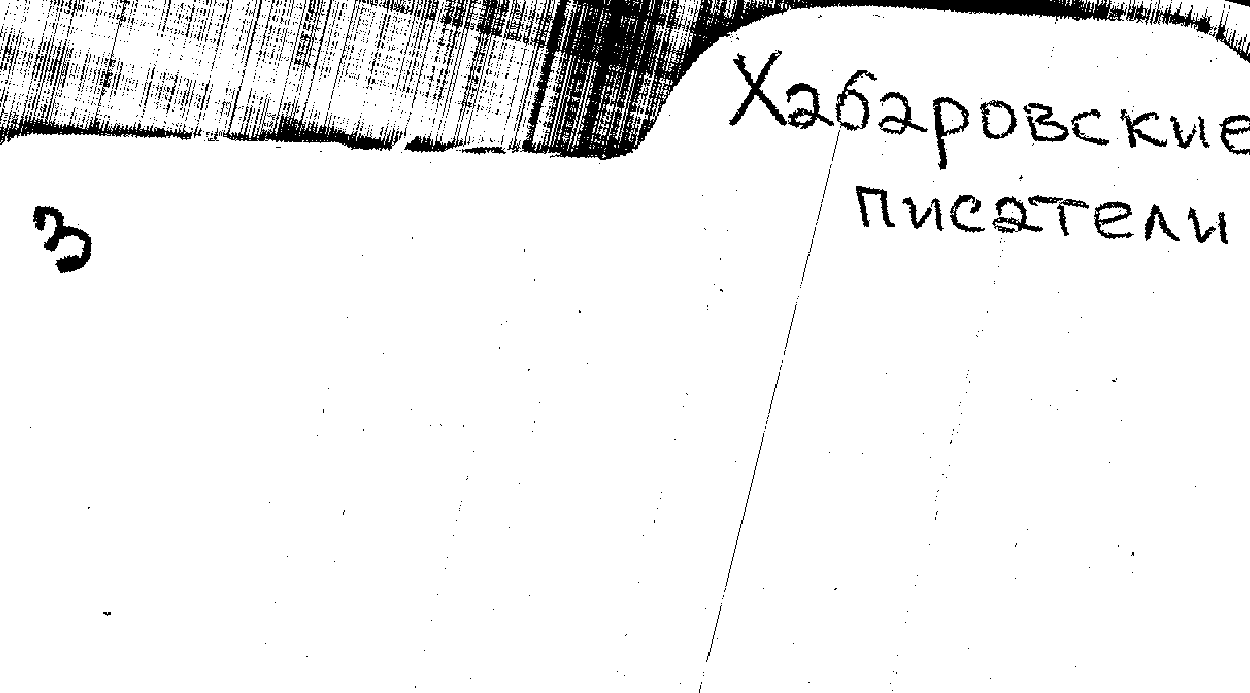 Хабаровские
писатели
З